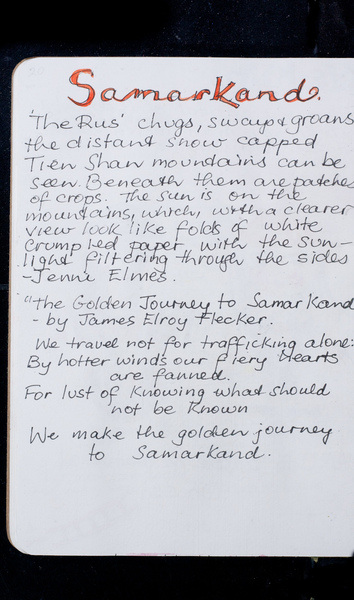 Samarkand.
'The Rus' chugs, sways & groans
the distant snow capped
Tien Shan mountains can be
seen. Beneath them are patches
of crops. The sun is on the
mountains, which, with a clearer
view look like folds of white
crumpled paper, with the sun-
light filtering through the sides
- Jenni Elmes.
"The Golden Journey to Samarkand
- by James Elroy Flecker.
We travel not for trafficking alone:
By hotter winds our fiery hearts
are fanned.
For lust of knowing what should
not be known
We make the golden journey
to Samarkand.